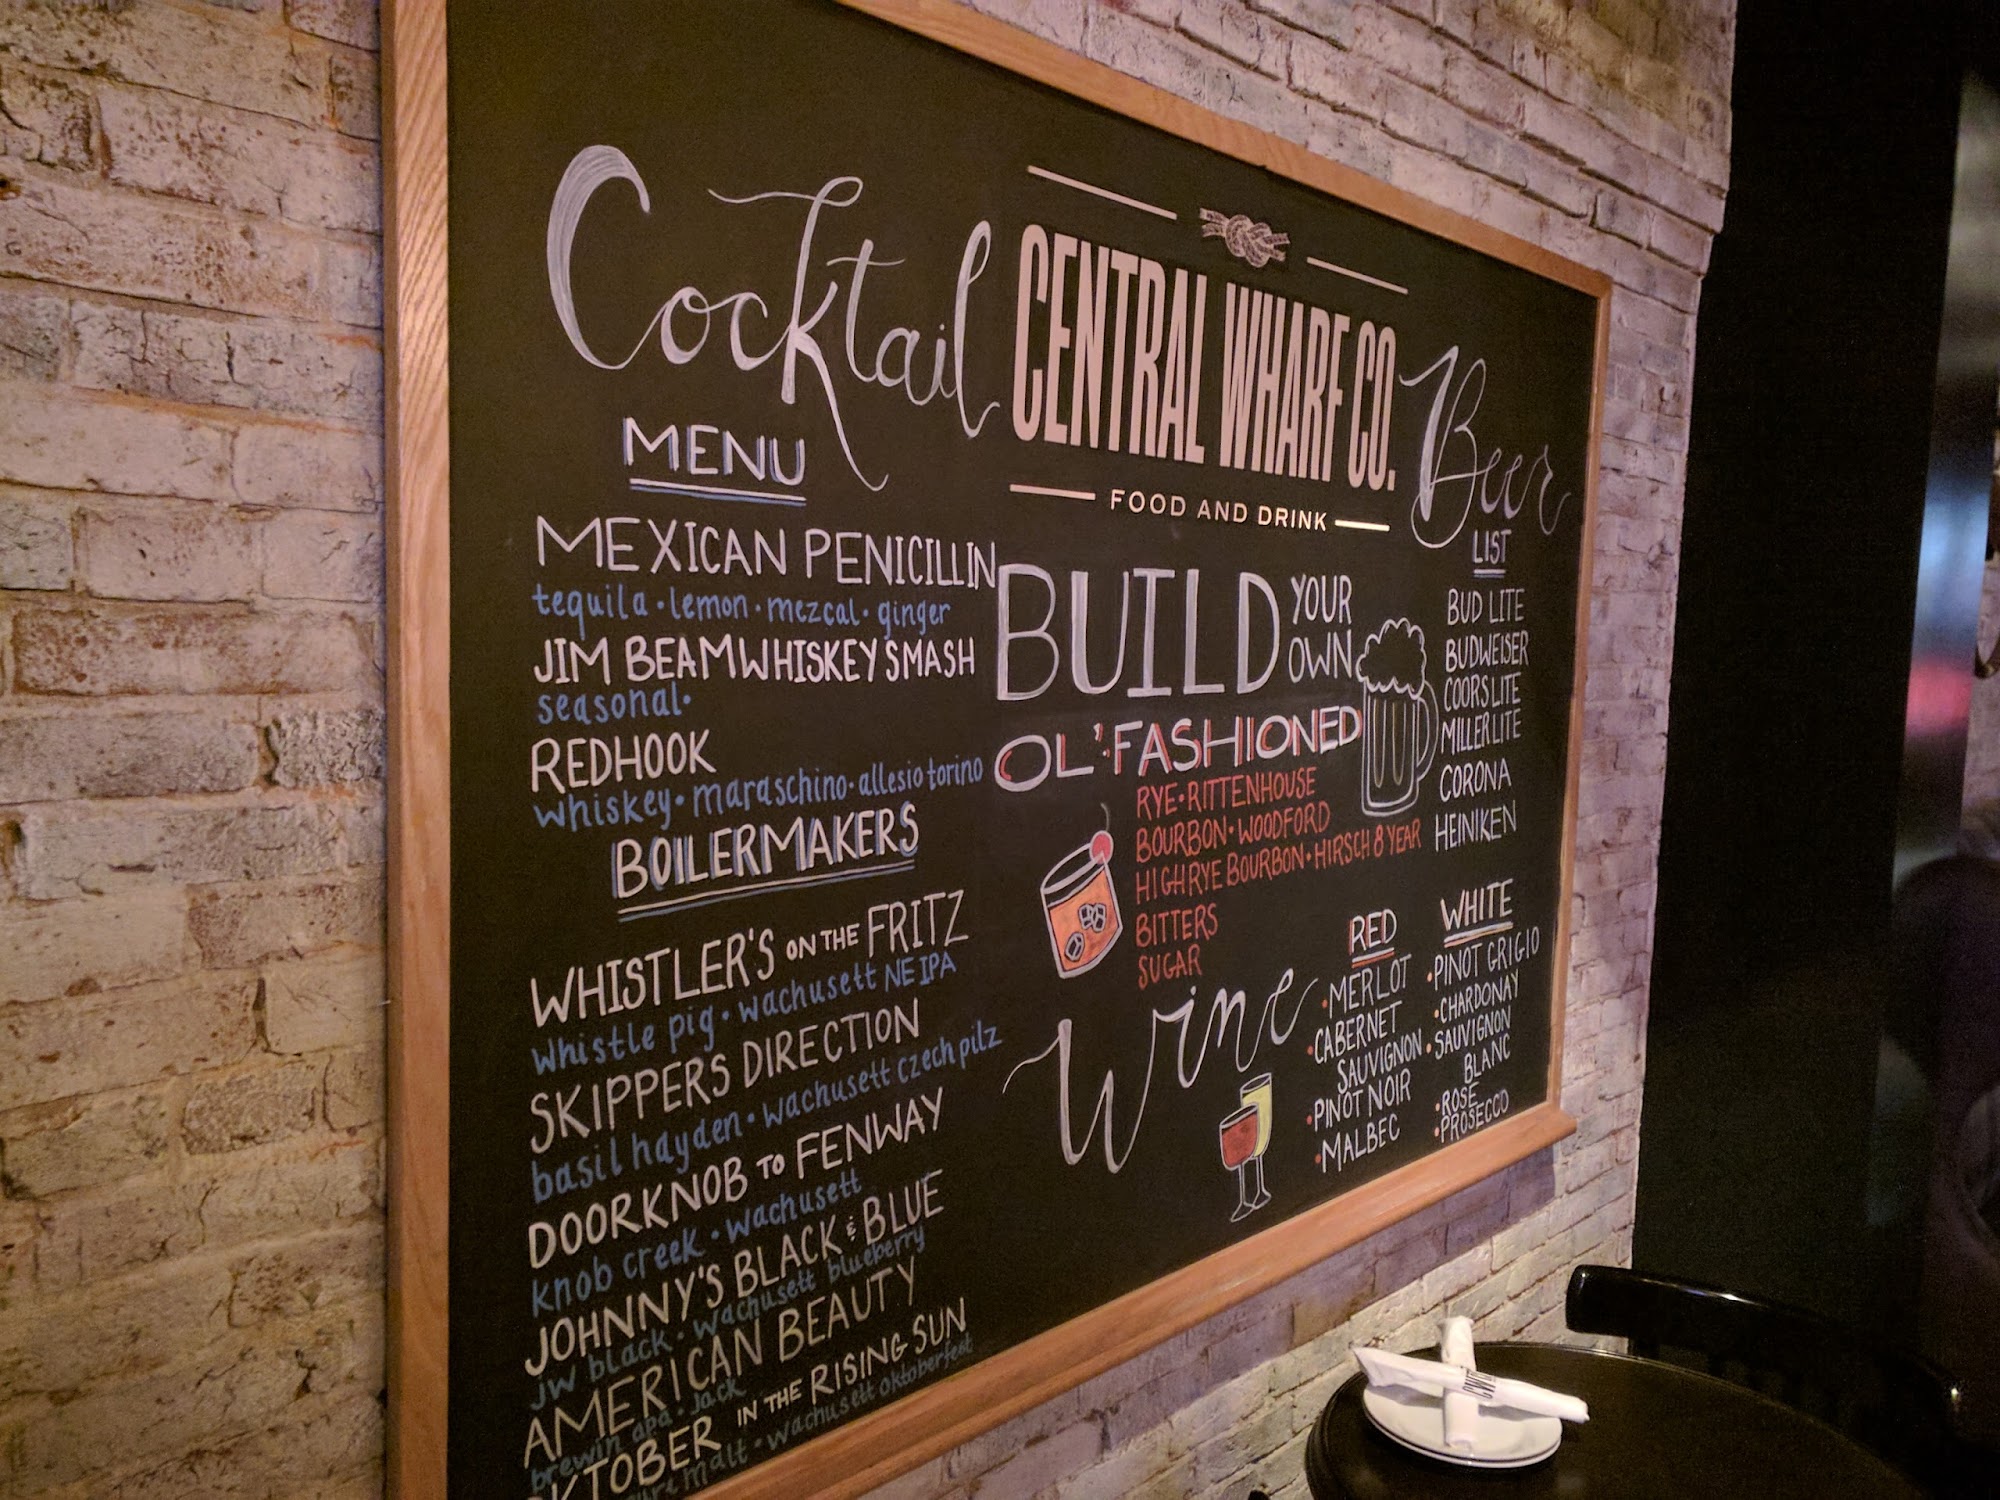 Cocktail
MENU
MEXICAN PENICILLIN
tequila · lemon · mezcal · ginger
JIM BEAM WHISKEY SMASH
seasonal ·
REDHOOK
whiskey · maraschino · allesio torino
BOILERMAKERS
WHISTLER'S ON THE FRITZ
whistle pig · wachusett NE IPA
SKIPPERS DIRECTION
basil hayden · wachusett czech pilz
DOORKNOB TO FENWAY
knob creek · wachusett
JOHNNY'S BLACK & BLUE
JW black · wachusett blueberry
AMERICAN BEAUTY
brewin apa · Jack
OKTOBER IN THE RISING SUN
malt · wachusett oktoberfest
CENTRAL WHARF CO.
FOOD AND DRINK
BUILD YOUR
OWN
OL' FASHIONED
RYE · RITTENHOUSE
BOURBON · WOODFORD
HIGH RYE BOURBON · HIRSCH 8 YEAR
BITTERS
SUGAR
Beer
LIST
BUD LITE
BUDWEISER
COORS LITE
MILLER LITE
CORONA
HEINIKEN
Wine
RED
· MERLOT
· CABERNET
SAUVIGNON
· PINOT NOIR
· MALBEC
WHITE
· PINOT GRIGIO
· CHARDONAY
· SAUVIGNON
BLANC
· ROSE
· PROSECCO